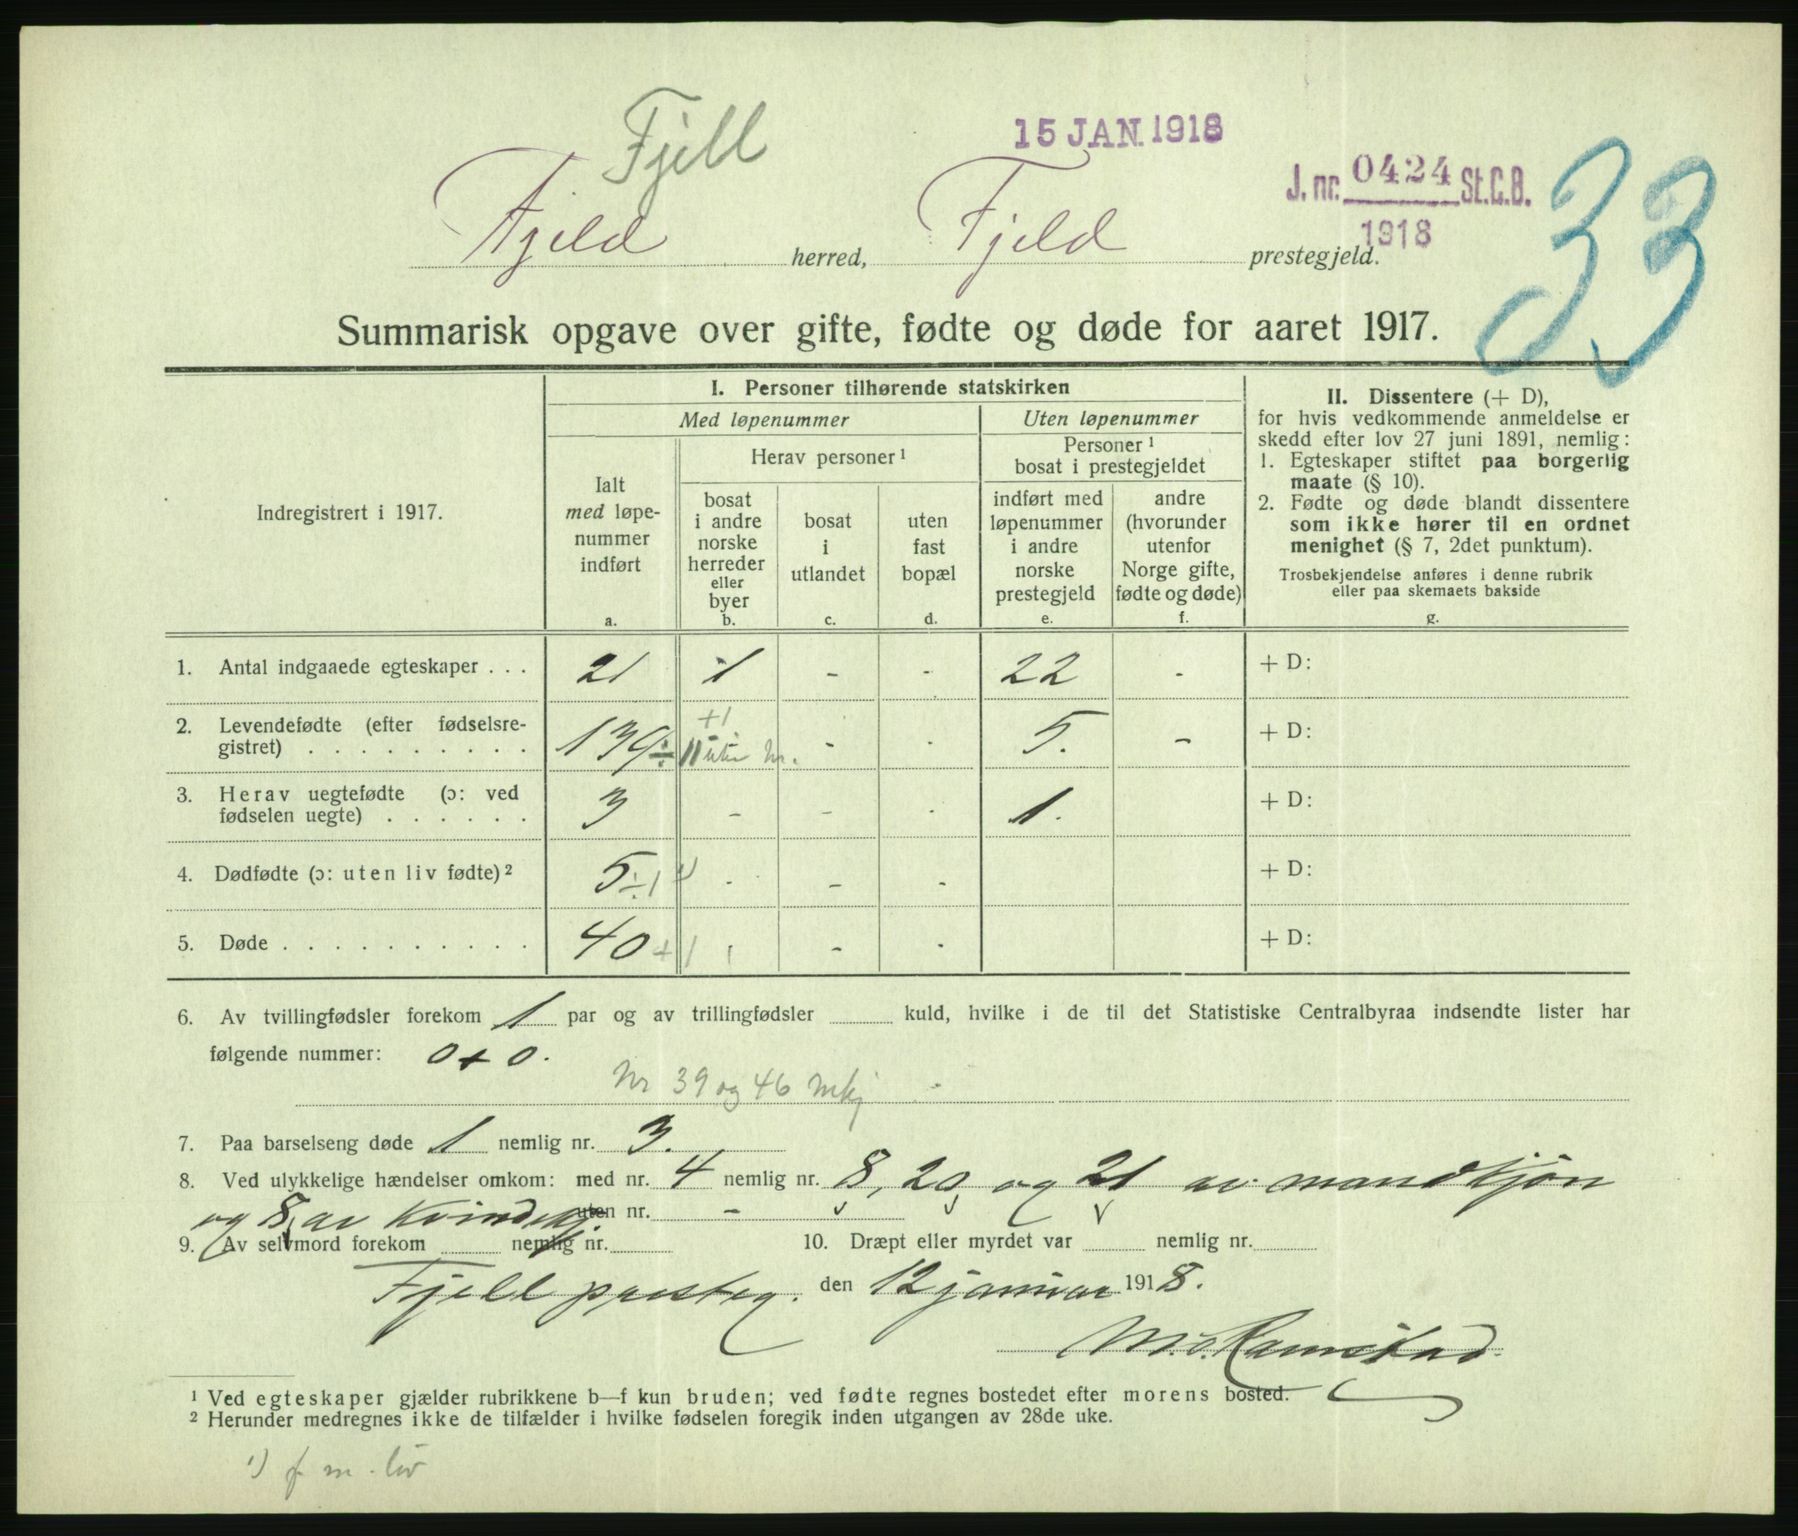 Fjell
15 JAN. 1918
J. nr. 0424 St.C.B.
1918
33
Fjeld herred, Fjeld prestegjeld.
Summarisk opgave over gifte, fødte og døde for aaret 1917.
Indregistrert i 1917.
I. Personer tilhørende statskirken
Med løpenummer
Uten løpenummer
Ialt
med løpe-
nummer
indført
a.
Herav personer ¹
bosat
i andre
norske
herreder
eller
byer
b.
bosat
i
utlandet
c.
uten
fast
bopæl
d.
Personer ¹
bosat i prestegjeldet
indført med
løpenummer
i andre
norske
prestegjeld
e.
andre
(hvorunder
utenfor
Norge gifte,
fødte og døde)
f.
II. Dissentere (+ D),
for hvis vedkommende anmeldelse er
skedd efter lov 27 juni 1891, nemlig:
1. Egteskaper stiftet paa borgerlig
maate (§ 10).
2. Fødte og døde blandt dissentere
som ikke hører til en ordnet
menighet (§ 7, 2det punktum).
Trosbekjendelse anføres i denne rubrik
eller paa skemaets bakside
g.
1. Antal indgaaede egteskaper . . . 21 1 - - 22 - + D:
+1
2. Levendefødte (efter fødselsre-
gistret) . . . . . . . . . 139 ÷ 11 uten Nr. - - 5. - + D:
3. Herav uegtefødte (ɔ: ved
fødselen uegte) . . . . . . 3 - - - 1. + D:
4. Dødfødte (ɔ: uten liv fødte) ² 5 ÷1 ¹) - - - + D:
5. Døde . . . . . . . . . . 40 +1 - - + D:
6. Av tvillingfødsler forekom 1 par og av trillingfødsler kuld, hvilke i de til det Statistiske Centralbyraa indsendte lister har
følgende nummer: 0 + 0.
Nr 39 og 46 mkj
7. Paa barselseng døde 1 nemlig nr. 3.
8. Ved ulykkelige hændelser omkom: med nr. 4 nemlig nr. 8, 20, og 21 av mandkjøn
og 8, av kvindekj. uten nr. -
9. Av selvmord forekom nemlig nr. 10. Dræpt eller myrdet var nemlig nr.
Fjell presteg. den 12 januar 1918.
M. O. Ramstad
¹ Ved egteskaper gjælder rubrikkene b—f kun bruden; ved fødte regnes bostedet efter morens bosted.
² Herunder medregnes ikke de tilfælder i hvilke fødselen foregik inden utgangen av 28de uke.
¹) f. m. liv